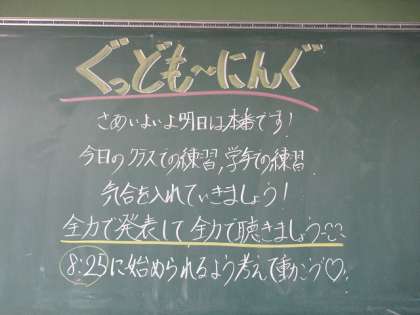 ぐっども〜にんぐ
さあいよいよ明日は本番です!
今日のクラスでの練習,学年での練習
気合を入れていきましょう!
全力で発表して全力で聴きましょう〜
8:25に始められるよう考えて動こう♡